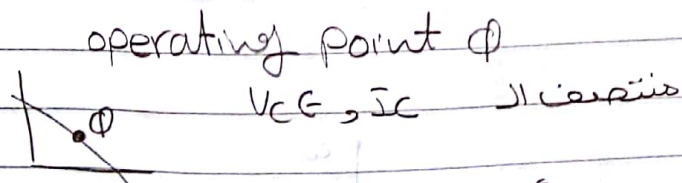 operating point Q
منتصف ال VCE و IC
Q